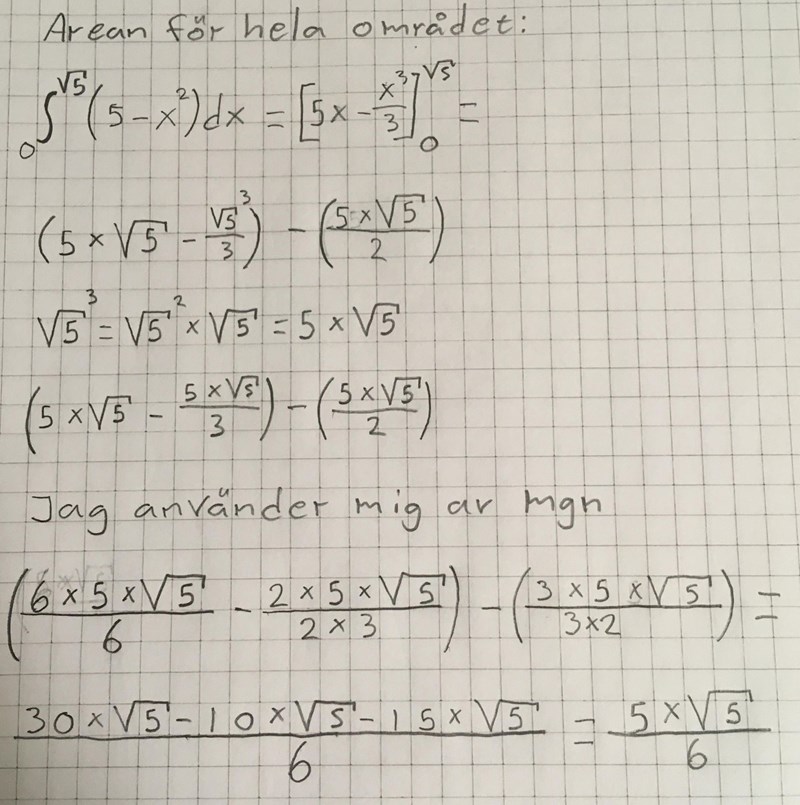 Arean för hela området:
∫₀^√5 (5 - x²) dx = [5x - x³/3]₀^√5 =
(5 × √5 - √5³/3) - (5 × √5/2)
√5³ = √5² × √5 = 5 × √5
(5 × √5 - 5 × √5/3) - (5 × √5/2)
Jag använder mig av mgn
(6 × 5 × √5/6 - 2 × 5 × √5/2 × 3) - (3 × 5 × √5/3×2) =
30 × √5 - 10 × √5 - 15 × √5/6 = 5 × √5/6